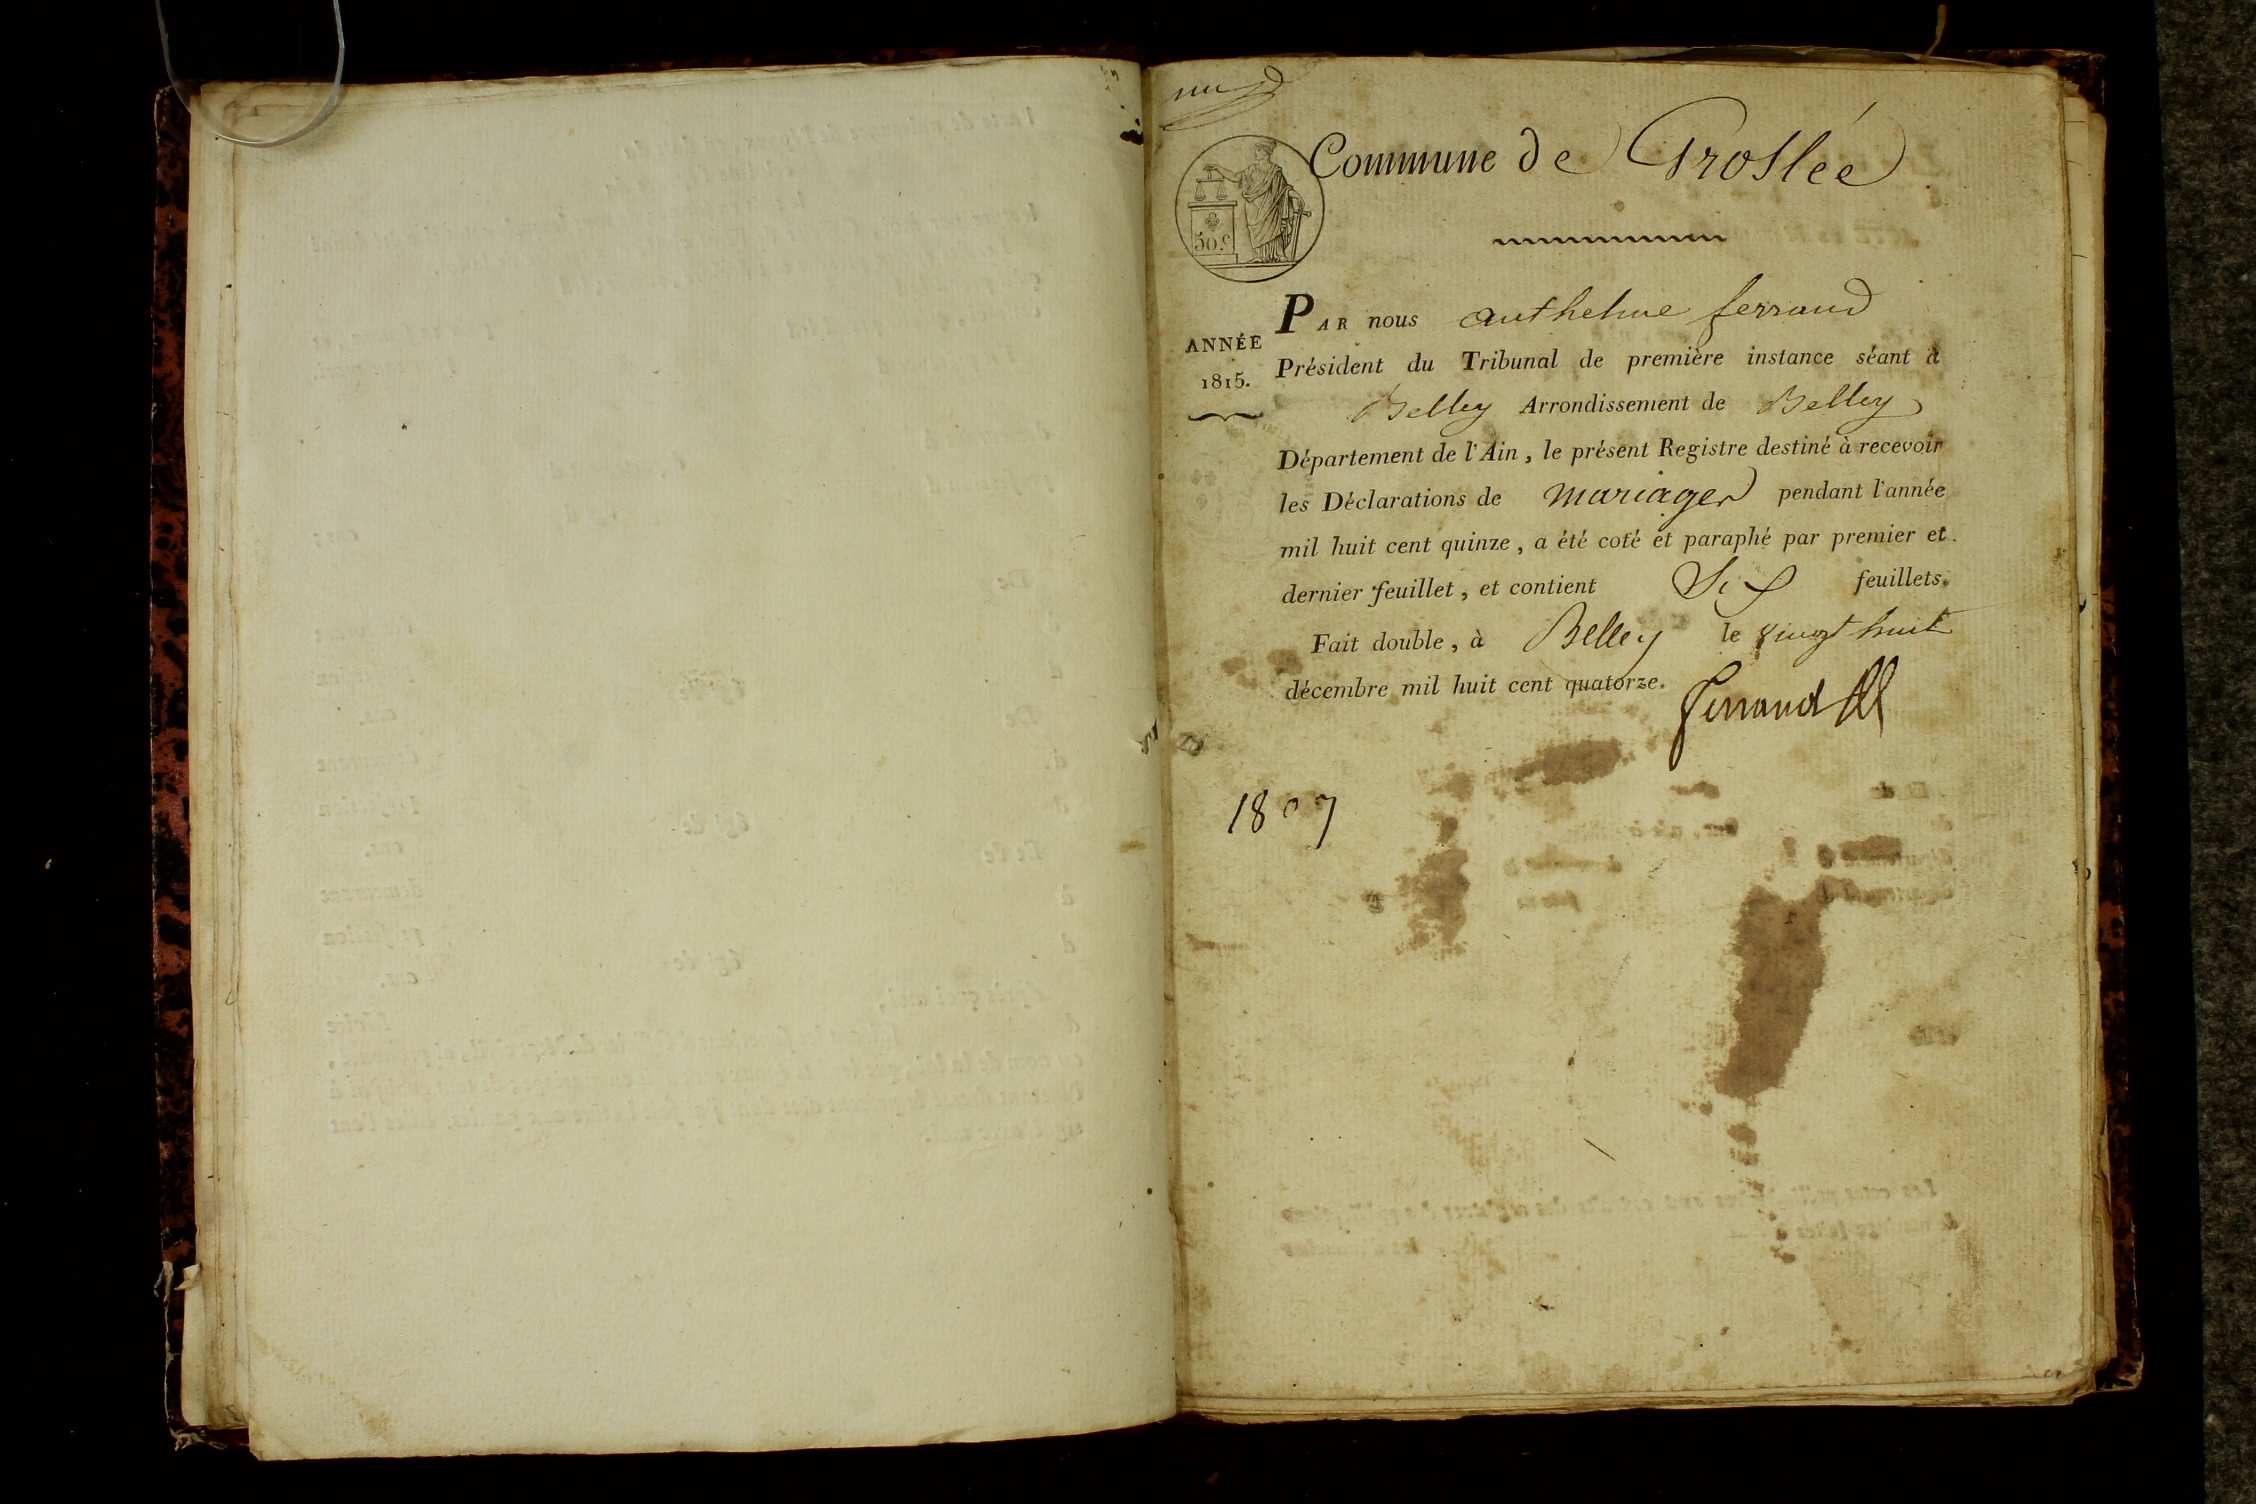 Commune de Groslée
50.c
ANNÉE
1815.
PAR nous anthelme ferrand
Président du Tribunal de première instance séant à
Belley Arrondissement de Belley
Département de l'Ain, le présent Registre destiné à recevoir
les Déclarations de mariages pendant l'année
mil huit cent quinze, a été coté et paraphé par premier et
dernier feuillet, et contient Six feuillets.
Fait double, à Belley le vingt huit
décembre mil huit cent quatorze.
Ferrand
1807